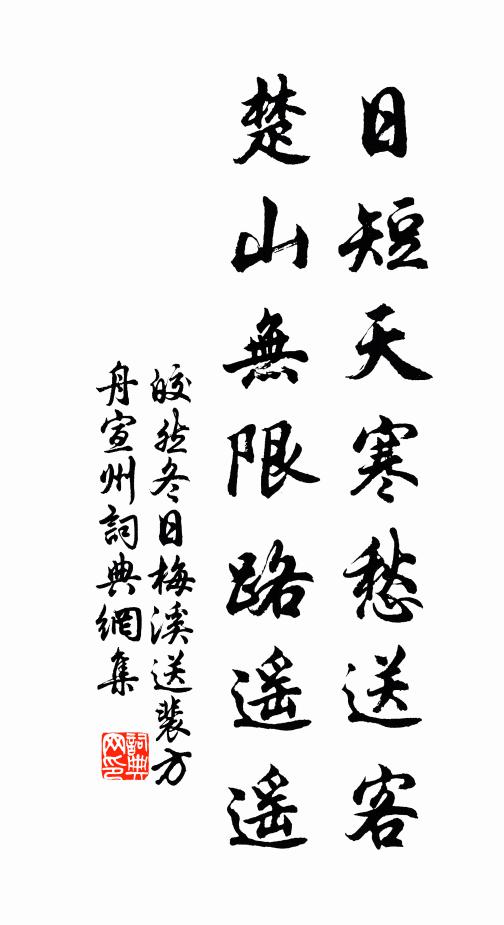 日短天寒愁送客
楚山無限路遥遥
皎然冬日梅溪送裴方
舟宣州詞典網集
詞典
网印